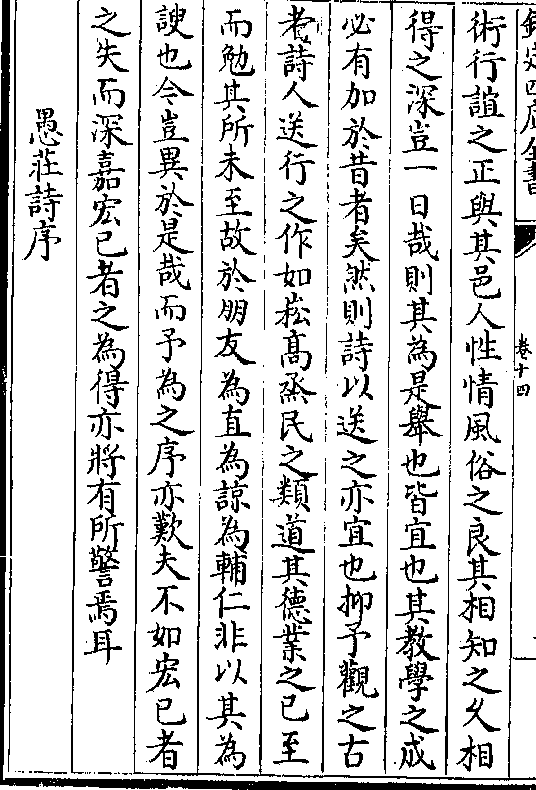 欽定四庫全書
卷十四
術行誼之正與其邑人性情風俗之良其相知之久相
得之深豈一日哉則其為是舉也皆宜也其教學之成
必有加於昔者矣然則詩以送之亦宜也抑予觀之古
者詩人送行之作如崧髙烝民之類道其德業之已至
而勉其所未至故於朋友為直為諒為輔仁非以其為
諛也今豈異於是哉而予為之序亦歎夫不如宏已者
之失而深嘉宏已者之為得亦將有所警焉耳
愚莊詩序